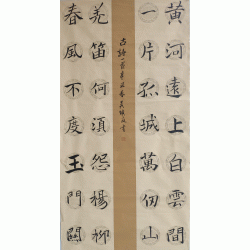 黄河遠上白雲間
一片孤城萬仞山
羌笛何須怨楊柳
春風不度玉門關